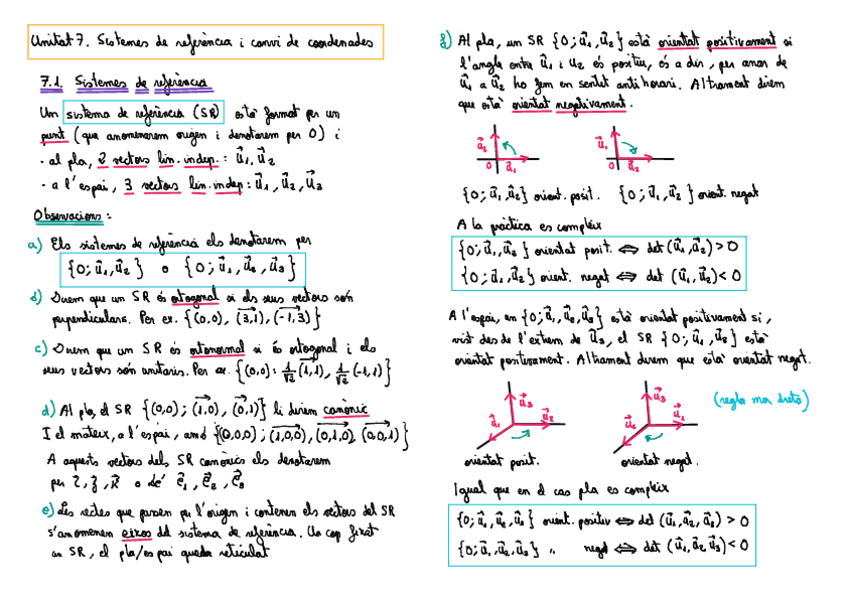 Unitat 7. Sistemes de referència i canvi de coordenades
7.1. Sistemes de referència
Un sistema de referència (SR) està format per un
punt (que anomenarem origen i denotarem per O) i
· al pla, 2 vectors lin. indep.: u⃗₁, u⃗₂
· a l'espai, 3 vectors lin. indep: u⃗₁, u⃗₂, u⃗₃
Observacions:
a) Els sistemes de referència els denotarem per
{O; u⃗₁, u⃗₂} o {O; u⃗₁, u⃗₂, u⃗₃}
b) Direm que un SR és ortogonal si els seus vectors són
perpendiculars. Per ex. {(0,0), (3,1), (-1,3)}
c) Direm que un SR és ortonormal si és ortogonal i els
seus vectors són unitaris. Per ex. {(0,0): 1/√2 (1,1), 1/√2 (-1,1)}
d) Al pla, el SR {(0,0); (1,0), (0,1)} li direm canònic
I el mateix, a l'espai, amb {(0,0,0); (1,0,0), (0,1,0), (0,0,1)}
A aquests vectors dels SR canònics els denotarem
per i, j, k o bé e⃗₁, e⃗₂, e⃗₃
e) Les rectes que passen per l'origen i contenen els vectors del SR
s'anomenen eixos del sistema de referència. Un cop fixat
un SR, el pla/espai queda reticulat
g) Al pla, un SR {O; u⃗₁, u⃗₂} està orientat positivament si
l'angle entre u⃗₁ i u₂ és positiu, és a dir, per anar de
u⃗₁ a u⃗₂ ho fem en sentit antihorari. Altrament direm
que està orientat negativament.
u⃗₂ O u⃗₁
u⃗₁ O u⃗₂
{O; u⃗₁, u⃗₂} orient. posit. {O; u⃗₁, u⃗₂} orient. negat
A la pràctica es compleix
{O; u⃗₁, u⃗₂} orientat posit. ⟺ det (u⃗₁, u⃗₂) > 0
{O; u⃗₁, u⃗₂} orient. negat ⟺ det (u⃗₁, u⃗₂) < 0
A l'espai, en {O; u⃗₁, u⃗₂, u⃗₃} està orientat positivament si,
vist des de l'extrem de u⃗₃, el SR {O; u⃗₁, u⃗₂} està
orientat positivament. Altrament direm que està orientat negat.
u⃗₁ u⃗₃ u⃗₂
u⃗₂ u⃗₃ u⃗₁
(regla mà dreta)
orientat posit. orientat negat.
Igual que en el cas pla es compleix
{O; u⃗₁, u⃗₂, u⃗₃} orient. positiv ⟺ det (u⃗₁, u⃗₂, u⃗₃) > 0
{O; u⃗₁, u⃗₂, u⃗₃} " negat ⟺ det (u⃗₁, u⃗₂, u⃗₃) < 0